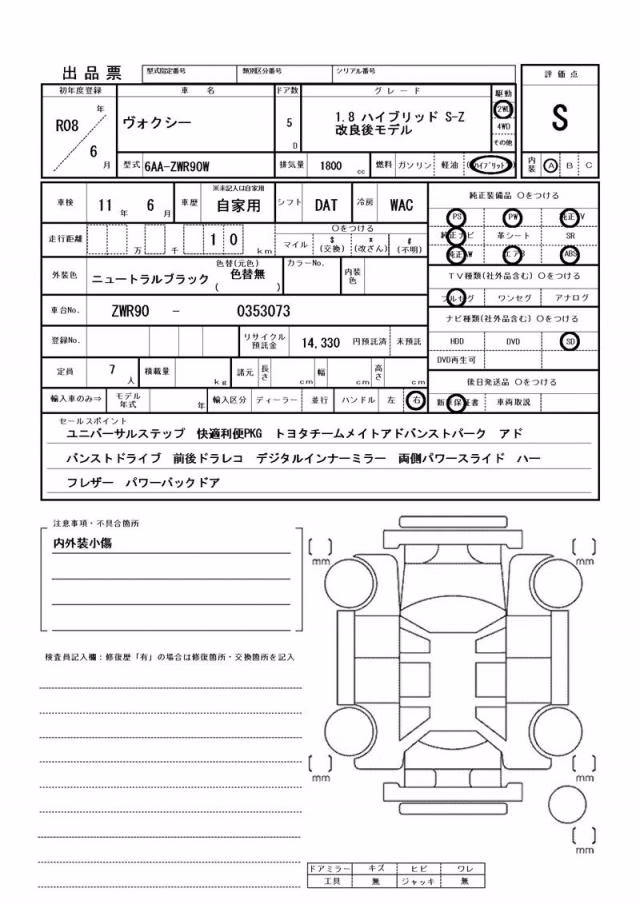 出品票 型式指定番号 類別区分番号 シリアル番号
初年度登録 車名 ドア数 グレード 駆動 評価点
R08 年 6 月 ヴォクシー 5 D 1.8 ハイブリッド S-Z 2WD
改良後モデル 4WD
その他
S
型式 6AA-ZWR90W 排気量 1800 cc 燃料 ガソリン 軽油 (ハイブリッド) 内装 A B C
車検 11 年 6 月 車歴 ※未記入は自家用 自家用 シフト DAT 冷房 WAC
純正装備品 〇をつける
PS PW 純正TV
純正ナビ 革シート SR
純正AW エアB ABS
走行距離 万 千 1 0 km 〇をつける
マイル $(交換) x(改ざん) #(不明)
外装色 ニュートラルブラック 色替(元色) 色替無 ( ) カラーNo. 内装色
TV種類(社外品含む) 〇をつける
フルセグ ワンセグ アナログ
車台No. ZWR90 - 0353073
ナビ種類(社外品含む) 〇をつける
HDD DVD SD
DVD再生可
登録No. リサイクル預託金 14,330 円預託済 未預託
定員 7 人 積載量 kg 諸元 長さ cm 幅 cm 高さ cm
後日発送品 〇をつける
新車保証書 車両取説
輸入車のみ⇒ モデル年式 年 輸入区分 ディーラー 並行 ハンドル 左 右
セールスポイント
ユニバーサルステップ 快適利便PKG トヨタチームメイトアドバンストパーク アド
バンストドライブ 前後ドラレコ デジタルインナーミラー 両側パワースライド ハー
フレザー パワーバックドア
注意事項・不具合箇所
内外装小傷
検査員記入欄：修復歴「有」の場合は修復箇所・交換箇所を記入
[ ] mm
[ ] mm
[ ] mm
[ ] mm
[ ] mm
ドアミラー キズ ヒビ ワレ
工具 無 ジャッキ 無